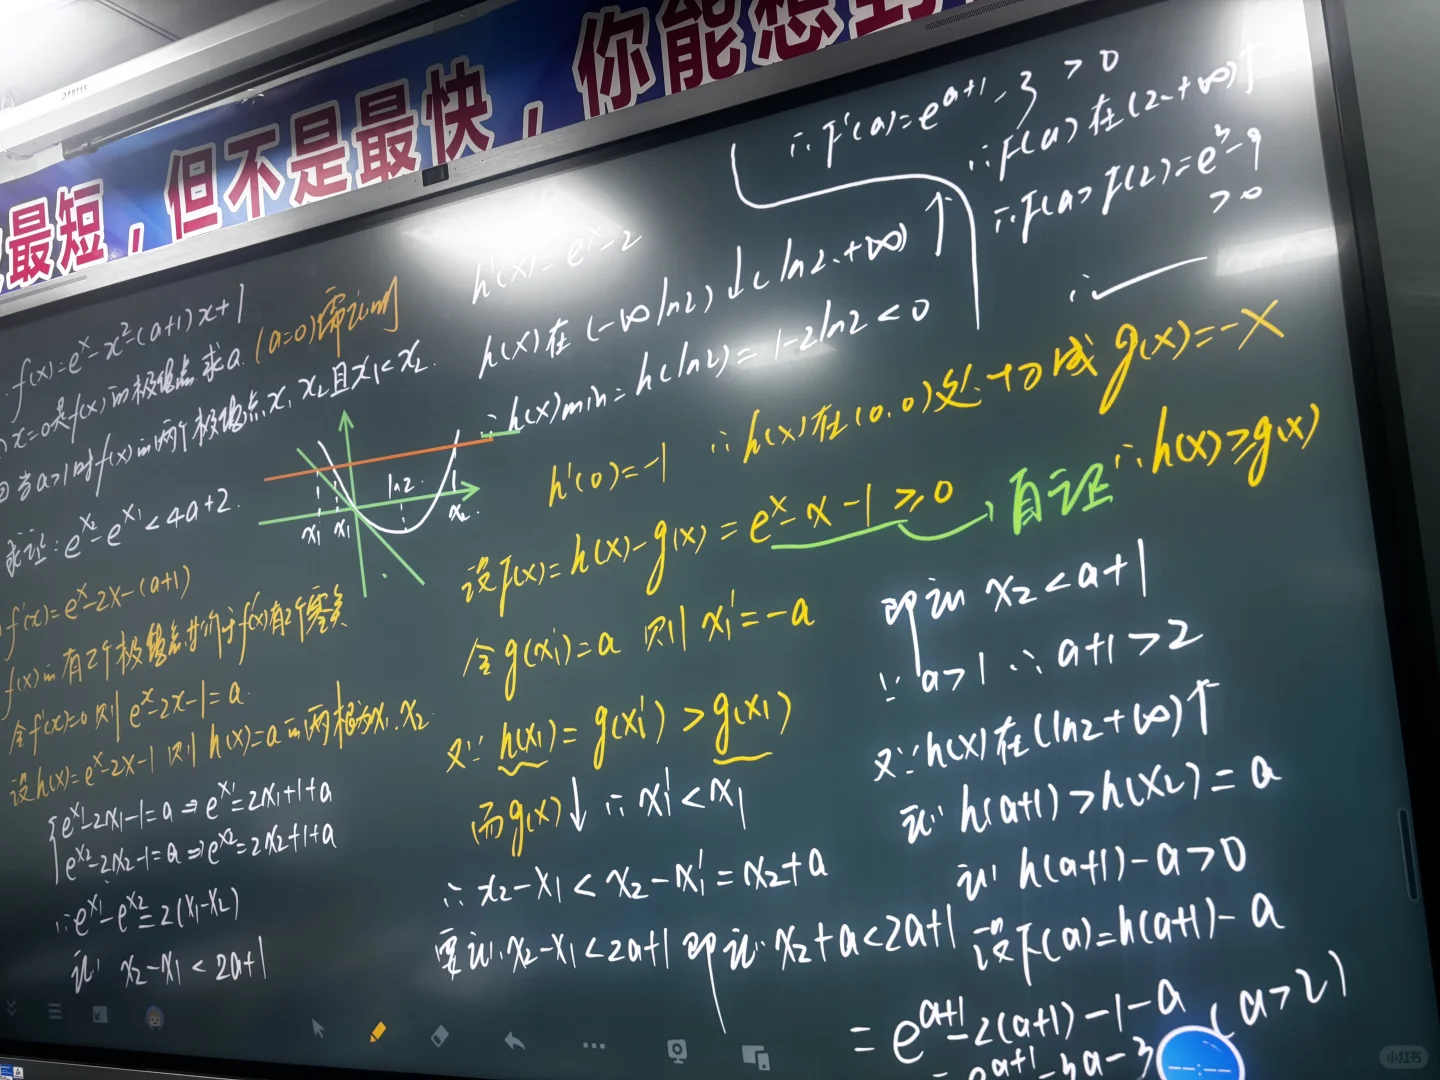 最短，但不是最快，你能想到
f(x)=eˣ-x²-(a+1)x+1
x=0是f(x)的极值点求a.(a=0)需证明
②当a>1时f(x)的两个极值点x₁ x₂且x₁<x₂.
求证:e^x₂-e^x₁<4a+2.
f'(x)=eˣ-2x-(a+1)
f(x)的有2个极值点等价于f'(x)有2个零点
令f'(x)=0 则 eˣ-2x-1=a.
设h(x)=eˣ-2x-1 则 h(x)=a的两根为x₁.x₂.
e^x₁-2x₁-1=a⇒e^x₁=2x₁+1+a
e^x₂-2x₂-1=a⇒e^x₂=2x₂+1+a
∴e^x₁-e^x₂=2(x₁-x₂)
证: x₂-x₁<2a+1
x₁' x₁ ln2 x₂
h'(x)=eˣ-2
h(x)在(-∞ ln2)↓(ln2.+∞)↑
∴h(x)min=h(ln2)=1-2ln2<0
h'(0)=-1 ∴h(x)在(0,0)处切线g(x)=-x
设F(x)=h(x)-g(x)=eˣ-x-1≥0→自证∴h(x)≥g(x)
令g(x₁')=a 则 x₁'=-a
又∵h(x₁)=g(x₁')>g(x₁)
而g(x)↓ ∴x₁'<x₁
∴x₂-x₁<x₂-x₁'=x₂+a
要证:x₂-x₁<2a+1 即证:x₂+a<2a+1
即证 x₂<a+1
∵a>1 ∴a+1>2
又∵h(x)在(ln2+∞)↑
证:h(a+1)>h(x₂)=a
证:h(a+1)-a>0
设F(a)=h(a+1)-a
=e^(a+1)-2(a+1)-1-a (a>2)
=e^(a+1)-3a-3
∴F'(a)=e^(a+1)-3>0
∴F(a)在(2.+∞)↑
∴F(a>F(2)=e³-9
>0
∴
小红书